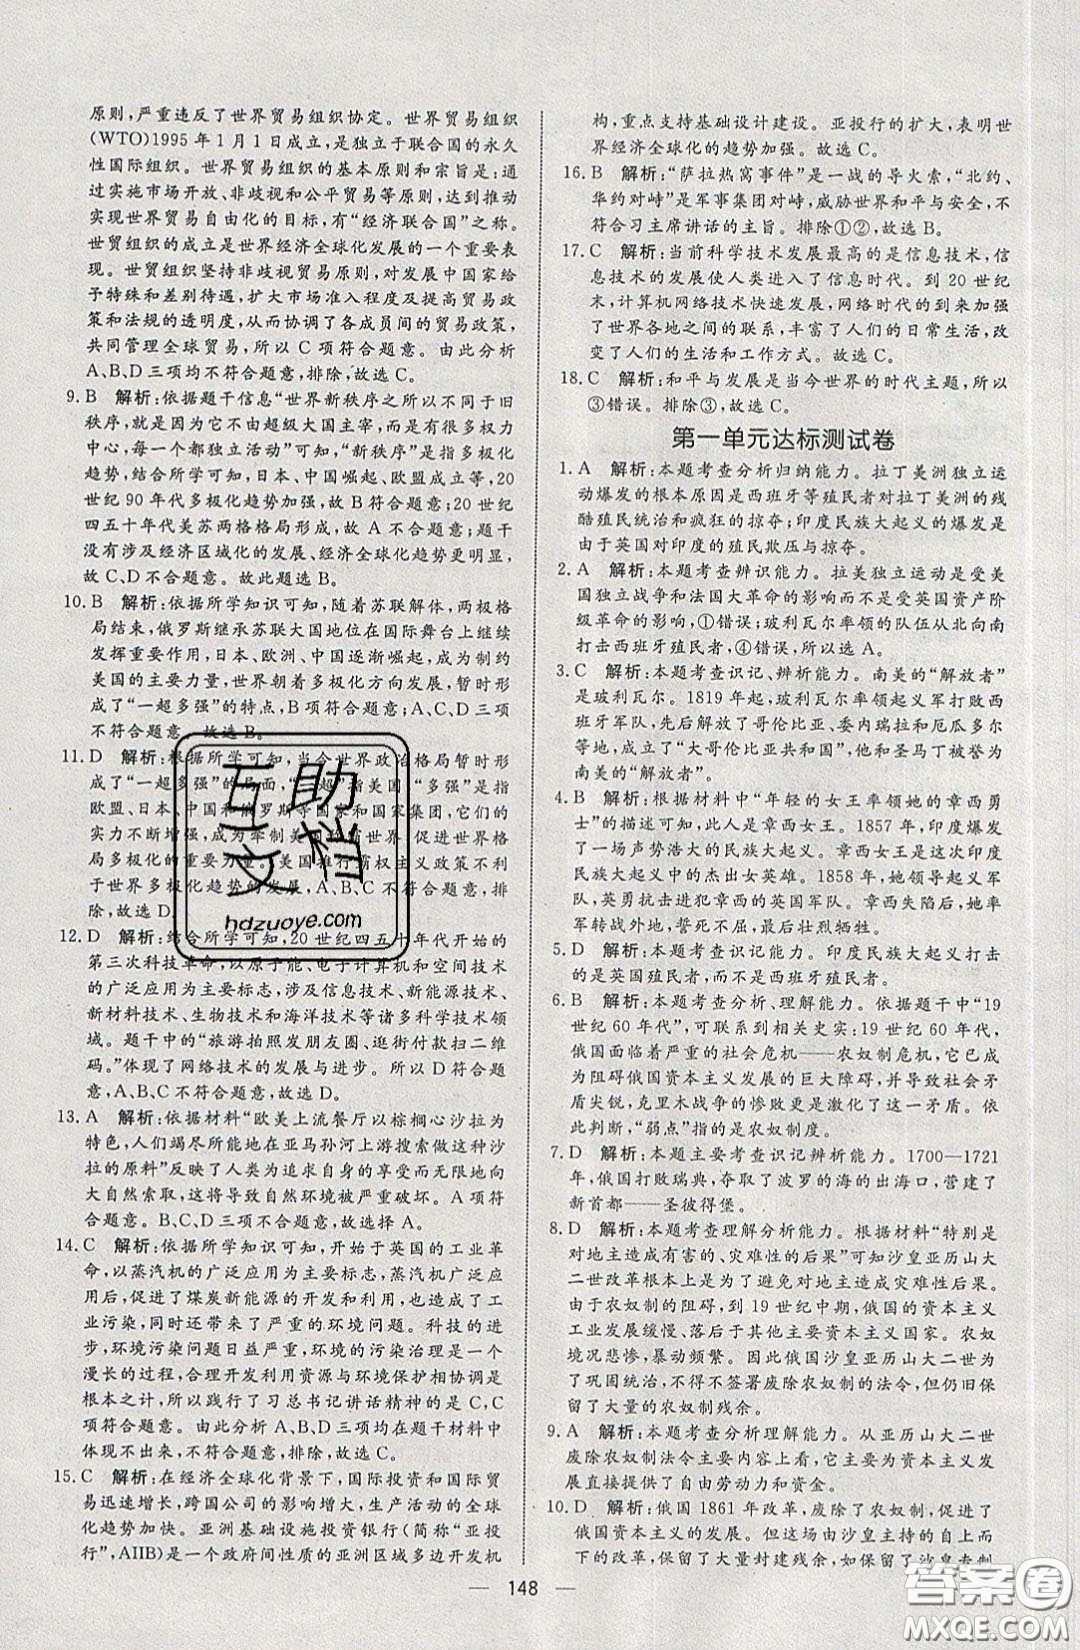 原则,严重违反了世界贸易组织协定。世界贸易组织
(WTO)1995年1月1日成立,是独立于联合国的永久
性国际组织。世界贸易组织的基本原则和宗旨是:通
过实施市场开放、非歧视和公平贸易等原则,达到推动
实现世界贸易自由化的目标,有“经济联合国”之称。
世贸组织的成立是世界经济全球化发展的一个重要表
现。世贸组织坚持非歧视贸易原则,对发展中国家给
予特殊和差别待遇,扩大市场准入程度及提高贸易政
策和法规的透明度,协调了各成员间的贸易政策,
共同管理全球贸易,所以C项符合题意。由此分析
A、B、D三项均不符合题意,排除,故选C。
9. B 解析:依据题干信息“世界新秩序之所以不同于旧
秩序,就是因为它不由超级大国主宰,而是有很多权力
中心,每一个都独立活动”可知,“新秩序”是指多极化
趋势,结合所学可知,日本、中国崛起、欧盟成立等,20
世纪90年代多极化趋势加强,故B符合题意。20世纪
四五十年代美苏两格格局形成,故A不合题意;题干
没有涉及经济区域化的发展、经济全球化趋势更明显,
故C、D不合题意。故此题选B。
10. B 解析:依据所学知识可知,随着苏联解体,两极格
局结束,俄罗斯继承苏联大国地位在国际舞台上继续
发挥重要作用,日本、欧洲、中国逐渐崛起,成为制约
美国的主要力量,世界朝着多极化方向发展,暂时形
成了“一超多强”的特点,B项符合题意;A、C、D三项
不符合题意。故选B。
11. D 解析:根据所学可知,当今世界政治格局暂时形
成了“一超多强”的局面,“一超”指美国,“多强”是指
欧盟、日本、中国和俄罗斯等国家和国家集团,它们的
实力不断增强,成为牵制美国
世界,促进世界格
局多极化的重要力量。美国推行霸权主义政策不利
于世界多极化趋势的发展,A、B、C不符合题意,排
除,故选D。
12. D 解析:结合所学可知,20世纪四五十年代开始的
第三次科技革命,以原子能、电子计算机和空间技术
的广泛应用为主要标志,涉及信息技术、新能源技术、
新材料技术、生物技术和海洋技术等诸多高科技技术领
域。题干中的“旅游拍照发朋友圈、逛街付款扫二维
码。”体现了网络技术的发展与进步。所以D符合题
意,A、B、C不符合题意,故选D。
13. A 解析:依据材料“欧美上流餐厅以棕榈心沙拉为
特色,人们竭尽所能地在亚马孙河上游搜索做这种沙
拉的原料”反映了人类为追求自身的享受而无限地向
大自然索取,导致自然环境被严重破坏。A项符合
题意。B、C、D三项不合题意,故选择A。
14. C 解析:依据所学知识可知,开始于英国的工业革
命,以蒸汽机的广泛应用为主要标志,蒸汽机的广泛应
用后,促进了煤炭新能源的开发和利用,造成了严重的
工业污染,同时还带来了严重的环境问题。科技的进
步,环境污染问题日益严重,环境的污染治理是一个
漫长的过程,合理开发利用资源与环境保护相协调是
根本之计,所以践行了习总书记讲话精神的是C,C
项符合题意。由此分析A、B、D三项在题干材料中
体现不出来,不符合题意,排除,故选C。
15. C 解析:在经济全球化背景下,国际投资和国际贸
易迅速增长,跨国公司的影响增大,生产活动的全球
化趋势加快。亚洲基础设施投资银行(简称“亚投
行”,AIIB)是一个政府间性质的亚洲区域多边开发机
构,重点支持基础设计建设。亚投行的扩大,表明世
界经济全球化的趋势加强。故选C。
16. B 解析:“萨拉热窝事件”是一战的导火索,“北约、
华约对峙”是军事集团对峙,威胁世界和平与安全,不
符合习主席讲话的主旨。排除①②,故选B。
17. C 解析:当前科学技术发展最高的是信息技术,信
息技术的发展使人类进入了信息时代。到20世纪
末,计算机网络技术快速发展,网络时代的到来加强
了世界各地之间的联系,丰富了人们的日常生活,改
变了人们的生活和工作方式。故选C。
18. C 解析:和平与发展是当今世界的时代主题,所以
③错误。排除③,故选C。
第一单元达标测试卷
1. A 解析:本题考查分析归纳能力。拉丁美洲独立运
动爆发的根本原因是西班牙等殖民者对拉丁美洲的残
酷殖民统治和疯狂的掠夺;印度民族大起义的爆发是
由于英国对印度的殖民欺压与掠夺。
2. A 解析:本题考查辨识能力。拉美独立运动是受美
国独立战争和法国大革命的影响而不是受英国资产阶
级革命的影响,①错误;玻利瓦尔率领的队伍从北向南
打击西班牙殖民者,④错误,所以选A。
3. C 解析:本题考查识记、辨析能力。南美的“解放者”
是玻利瓦尔。1819年起,玻利瓦尔率领起义军打败西
班牙军队,先后解放了哥伦比亚、委内瑞拉和厄瓜多尔
等地,成立了“大哥伦比亚共和国”,他和圣马丁被誉为
南美的“解放者”。
4. B 解析:根据材料中“年轻的女王率领她的章西勇
士”的描述可知,此人是章西女王。1857年,印度爆发
了一场声势浩大的民族大起义。章西女王是这次印度
民族大起义中的杰出女英雄。1858年,她领导起义军
队,英勇抗击进犯章西的英国军队。章西失陷后,她率
军转战外地,誓死不屈,最后壮烈牺牲。
5. D 解析:本题考查识记能力。印度民族大起义打击
的是英国殖民者,而不是西班牙殖民者。
6. B 解析:本题考查分析、理解能力。依据题干中“19
世纪60年代”,可联系到相关史实:19世纪60年代,
俄国面临着严重的社会危机——农奴制危机,它已成
为阻碍俄国资本主义发展的巨大障碍,并导致社会矛
盾尖锐,克里木战争的惨败更是激化了这一矛盾。依
此判断,“弱点”指的是农奴制度。
7. D 解析:本题主要考查识记辨析能力。1700—1721
年,俄国打败瑞典,夺取了波罗的海的出海口,营建了
新首都——圣彼得堡。
8. D 解析:本题考查理解分析能力。根据材料“特别是
对地主造成有害的、灾难性的后果”可知沙皇亚历山大
二世改革根本上是为了避免对地主造成灾难性后果。
由于农奴制的阻碍,到19世纪中期,俄国的资本主义
工业发展缓慢、落后于其他主要资本主义国家。农奴
境况悲惨,暴动频繁。因此俄国沙皇亚历山大二世为
了巩固统治,不得不签署废除农奴制的法令,但仍保留
了大量的农奴制残余。
9. A 解析:本题考查分析理解能力。从亚历山大二世
废除农奴制法令主要内容上看,这些措施为资本主义
发展直接提供了自由劳动力和资金。
10. D 解析:俄国1861年改革,废除了农奴制,促进了
俄国资本主义的发展。但这场由沙皇主持的自上而
下的改革,保留了大量封建残余,如保留了沙皇专制
互助
文档
hdzuoye.com
148
答案圈
MXQE.COM